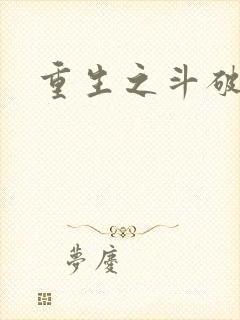 重生之斗破
夢廈